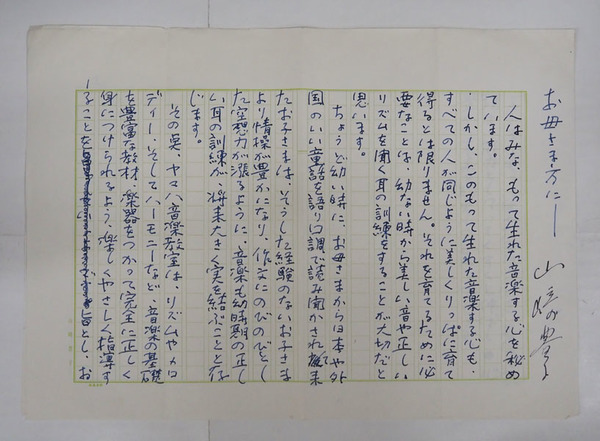 お母さま方に―
人はみな、もって生れた音楽する心を秘め
ています。
しかし、このもって生れた音楽する心も、
すべての人が同じように美しくりっぱに育て
得るとは限りません。それを育てるために必
要なことは、幼ない時から美しい音や正しい
リズムを聞く耳の訓練をすることが大切だと
思います。
ちょうど幼い時に、お母さまから日本や外
国のいい童話を語り口調で読み聞かされて来
たお子さまは、そうした経験のないお子さま
より情操が豊かになり、作文にのびのびとし
た空想力が漲るように、音楽も幼時期の正し
い耳の訓練が、将来大きく実を結ぶことと存
じます。
その点、ヤマハ音楽教室は、リズムやメロ
ディー、そしてハーモニーなど、音楽の基礎
を豊富な教材、楽器をつかって完全に正しく
身につけられるよう、楽しくやさしく指導す
ることを 旨とし、お